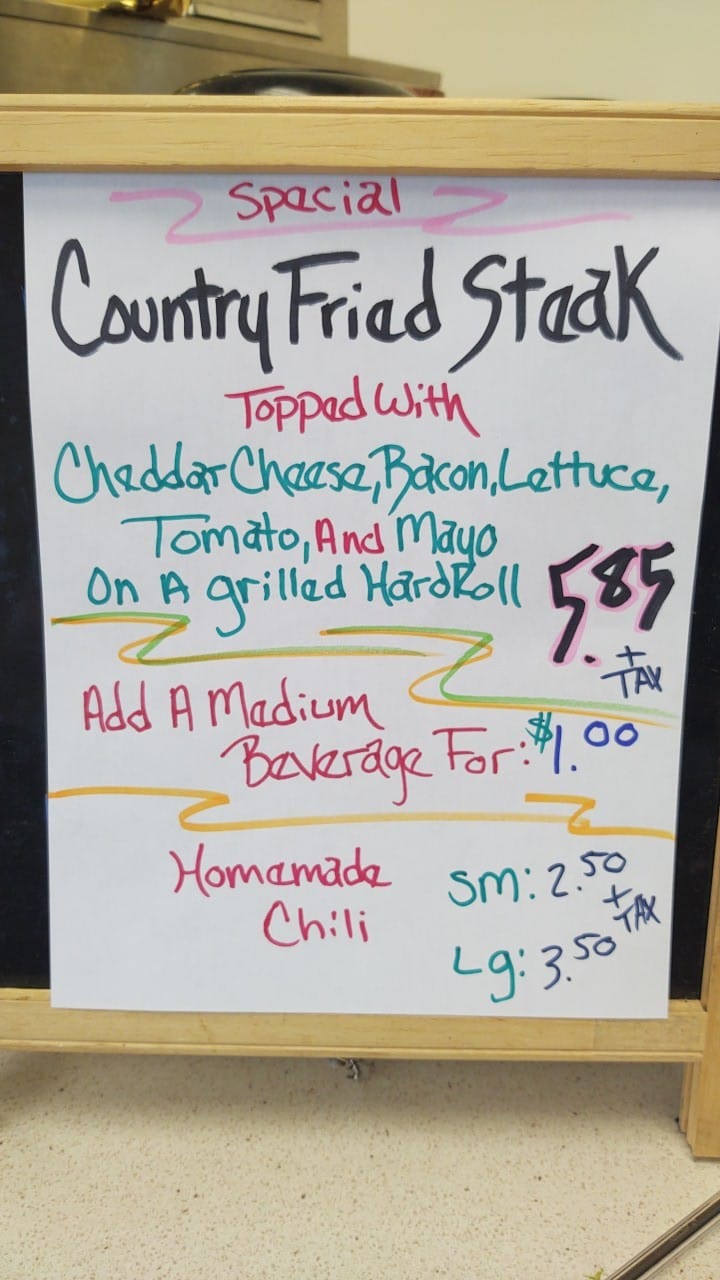 Special
Country Fried Steak
Topped With
Cheddar Cheese, Bacon, Lettuce,
Tomato, And Mayo
On A grilled Hard Roll
5.85
+
TAX
Add A Medium
Beverage For: $1.00
Homemade
Chili
Sm: 2.50
+
TAX
Lg: 3.50